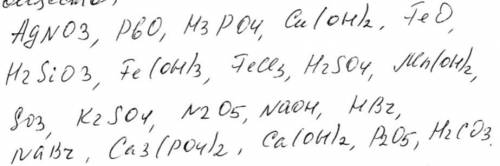 AgNO3, PbO, H3PO4, Cu(OH)2, FeO,
H2SiO3, Fe(OH)3, FeCl3, H2SO4, Mn(OH)2,
SO3, K2SO4, N2O5, NaOH, HBr,
NaBr, Ca3(PO4)2, Ca(OH)2, P2O5, H2CO3.